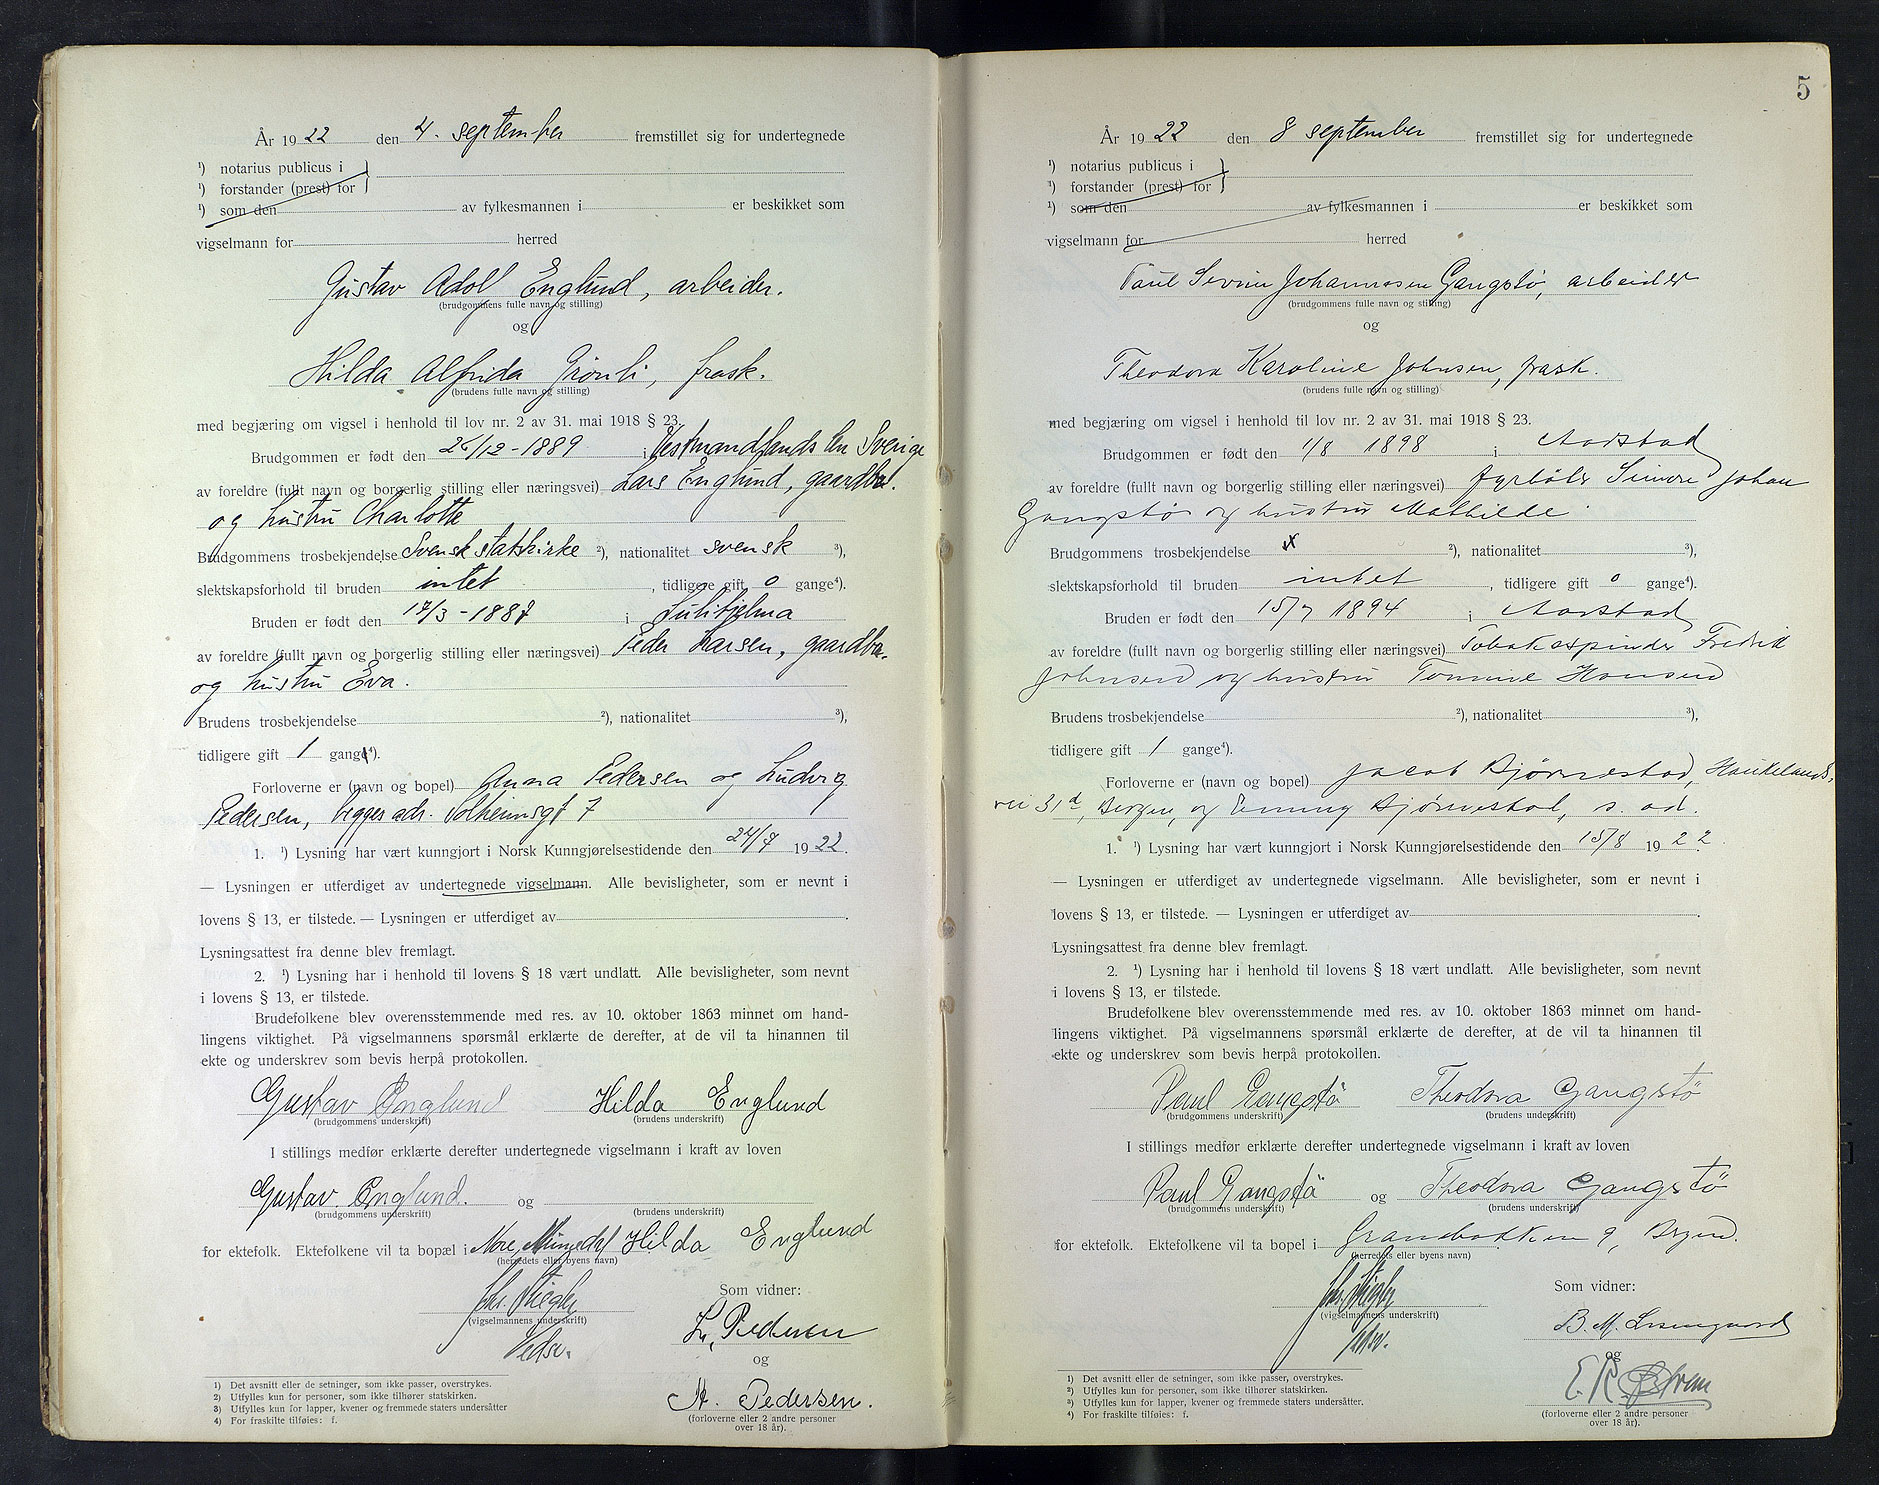 År 1922 den 4. september fremstillet sig for undertegnede
¹) notarius publicus i }
¹) forstander (prest) for
¹) som den av fylkesmannen i er beskikket som
vigselmann for herred
Gustav Adolf Englund, arbeider.
(brudgommens fulle navn og stilling)
og
Hilda Alfrida Grönli, frask.
(brudens fulle navn og stilling)
med begjæring om vigsel i henhold til lov nr. 2 av 31. mai 1918 § 23.
Brudgommen er født den /12-1889 i Vestmandlands len Sverige
av foreldre (fullt navn og borgerlig stilling eller næringsvei) Lars Englund, gaardbr.
og hustru Charlotte
Brudgommens trosbekjendelse Svensk statskirke ²), nationalitet svensk ³),
slektskapsforhold til bruden intet, tidligere gift 0 gange⁴).
Bruden er født den 17/3-1887 i Sulitjelma
av foreldre (fullt navn og borgerlig stilling eller næringsvei) Peder Larsen, gaardbr.
og hustru Eva.
Brudens trosbekjendelse ²), nationalitet ³),
tidligere gift 1 gang⁴).
Forloverne er (navn og bopel) Anna Pedersen og Ludvig
Pedersen, begges adr. Solheimsgt 7
1. ¹) Lysning har vært kunngjort i Norsk Kunngjørelsestidende den 24/7 1922.
— Lysningen er utferdiget av undertegnede vigselmann. Alle bevisligheter, som er nevnt i
lovens § 13, er tilstede. — Lysningen er utferdiget av .
Lysningsattest fra denne blev fremlagt.
2. ¹) Lysning har i henhold til lovens § 18 vært undlatt. Alle bevisligheter, som nevnt
i lovens § 13, er tilstede.
Brudefolkene blev overensstemmende med res. av 10. oktober 1863 minnet om hand-
lingens viktighet. På vigselmannens spørsmål erklærte de derefter, at de vil ta hinannen til
ekte og underskrev som bevis herpå protokollen.
Gustav Englund Hilda Englund
(brudgommens underskrift) (brudens underskrift)
I stillings medfør erklærte derefter undertegnede vigselmann i kraft av loven
Gustav Englund. og
(brudgommens underskrift) (brudens underskrift)
for ektefolk. Ektefolkene vil ta bopæl i Nore, Numedal Hilda Englund
(herredets eller byens navn)
Som vidner:
(vigselmannens underskrift)
L. Pedersen
og
A. Pedersen.
(forloverne eller 2 andre personer
over 18 år).
1) Det avsnitt eller de setninger, som ikke passer, overstrykes.
2) Utfylles kun for personer, som ikke tilhører statskirken.
3) Utfylles kun for lapper, kvener og fremmede staters undersåtter
4) For fraskilte tilføies: f.
5
År 1922 den 8 september fremstillet sig for undertegnede
¹) notarius publicus i }
¹) forstander (prest) for
¹) som den av fylkesmannen i er beskikket som
vigselmann for herred
Paul Severin Johannesen Gangstö, arbeider
(brudgommens fulle navn og stilling)
og
Theodora Karoline Johnsen, frask.
(brudens fulle navn og stilling)
med begjæring om vigsel i henhold til lov nr. 2 av 31. mai 1918 § 23.
Brudgommen er født den 1/8 1898 i Aarstad
av foreldre (fullt navn og borgerlig stilling eller næringsvei) Johan
Gangstö og hustru Mathilde
Brudgommens trosbekjendelse x ²), nationalitet ³),
slektskapsforhold til bruden intet, tidligere gift 0 gange⁴).
Bruden er født den 15/7 1894 i Aarstad
av foreldre (fullt navn og borgerlig stilling eller næringsvei) Tobakspinder Fredrik
Johnsen og hustru Tomine Hansen
Brudens trosbekjendelse ²), nationalitet ³),
tidligere gift 1 gange⁴).
Forloverne er (navn og bopel) Jacob Bjørnestad, Haukelands-
vei 31d, Bergen, og Emmy Bjørnestad, s. ad.
1. ¹) Lysning har vært kunngjort i Norsk Kunngjørelsestidende den 15/8 1922.
— Lysningen er utferdiget av undertegnede vigselmann. Alle bevisligheter, som er nevnt i
lovens § 13, er tilstede. — Lysningen er utferdiget av .
Lysningsattest fra denne blev fremlagt.
2. ¹) Lysning har i henhold til lovens § 18 vært undlatt. Alle bevisligheter, som nevnt
i lovens § 13, er tilstede.
Brudefolkene blev overensstemmende med res. av 10. oktober 1863 minnet om hand-
lingens viktighet. På vigselmannens spørsmål erklærte de derefter, at de vil ta hinannen til
ekte og underskrev som bevis herpå protokollen.
Paul Gangstö Theodora Gangstö
(brudgommens underskrift) (brudens underskrift)
I stillings medfør erklærte derefter undertegnede vigselmann i kraft av loven
Paul Gangstö og Theodora Gangstö
(brudgommens underskrift) (brudens underskrift)
for ektefolk. Ektefolkene vil ta bopel i Granbakken 9, Bergen.
(herredets eller byens navn)
Som vidner:
(vigselmannens underskrift)
B. M.
og
E. R.
(forloverne eller 2 andre personer
over 18 år).
1) Det avsnitt eller de setninger, som ikke passer, overstrykes.
2) Utfylles kun for personer, som ikke tilhører statskirken.
3) Utfylles kun for lapper, kvener og fremmede staters undersåtter.
4) For fraskilte tilføies: f.